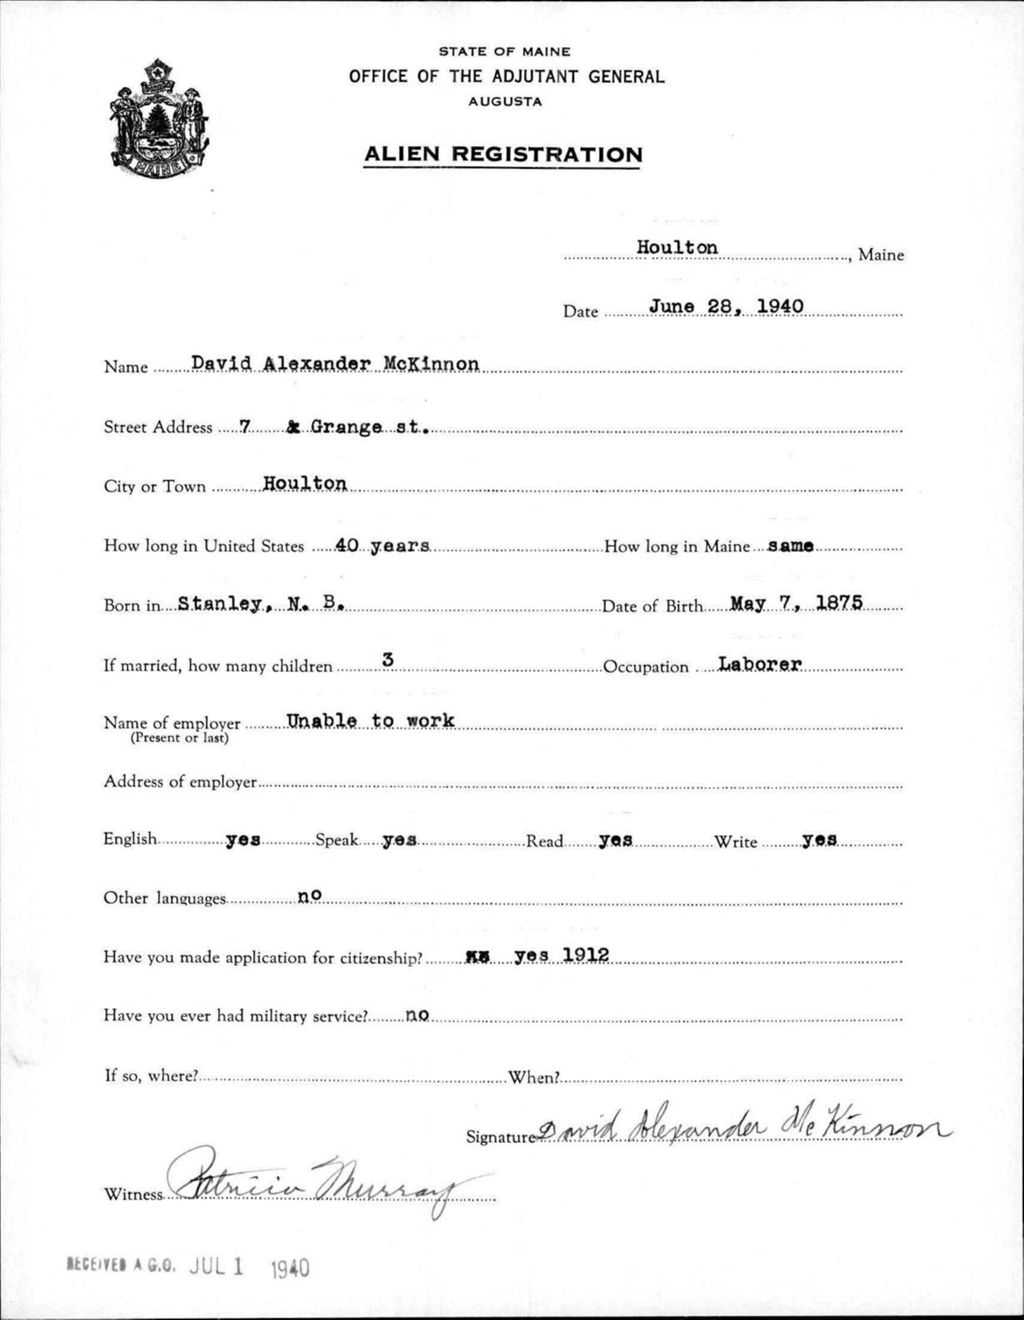 STATE OF MAINE
OFFICE OF THE ADJUTANT GENERAL
AUGUSTA
ALIEN REGISTRATION
MAINE
Houlton, Maine
Date June 28, 1940
Name David Alexander McKinnon
Street Address 7 & Grange st.
City or Town Houlton
How long in United States 40 years How long in Maine same
Born in Stanley, N. B. Date of Birth May 7, 1875
If married, how many children 3 Occupation Laborer
Name of employer Unable to work
(Present or last)
Address of employer
English yes Speak yes Read yes Write yes
Other languages no
Have you made application for citizenship? yes 1912
Have you ever had military service? no
If so, where? When?
Signature David Alexander McKinnon
Witness Patricia Murray
RECEIVED A.G.O. JUL 1 1940